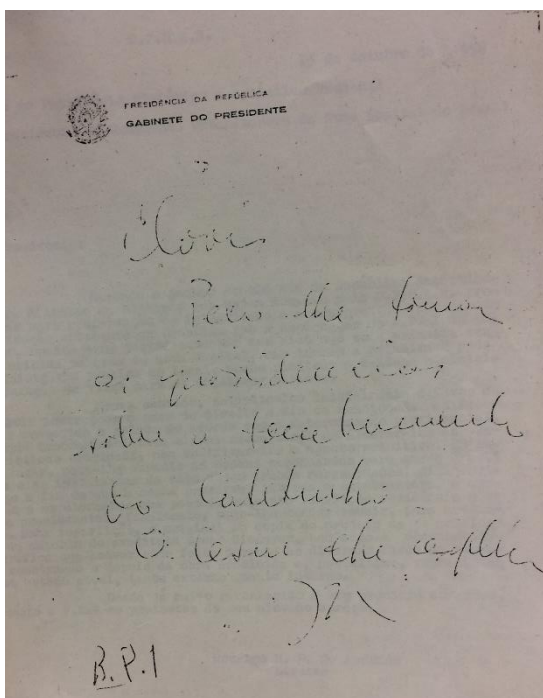 PRESIDÊNCIA DA REPÚBLICA
GABINETE DO PRESIDENTE
Clovis
Peço lhe tomar
as providencias
sobre o tombamento
do Catetinho
O Cesar lhe explica
JK
B.P.1